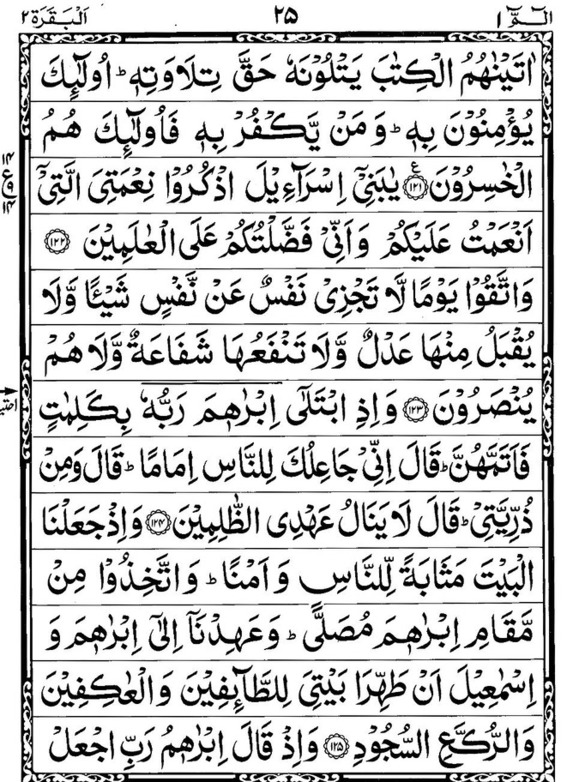 الٓمّٓ ١ ٢٥ اَلْبَقَرَة ٢
اٰتَيْنٰهُمُ الْكِتٰبَ يَتْلُوْنَهٗ حَقَّ تِلَاوَتِهٖؕ اُولٰٓئِكَ
يُؤْمِنُوْنَ بِهٖؕ وَ مَنْ يَّكْفُرْ بِهٖ فَاُولٰٓئِكَ هُمُ
الْخٰسِرُوْنَ ﴿۱۲۱﴾ع يٰبَنِيْۤ اِسْرَآءِيْلَ اذْكُرُوْا نِعْمَتِيَ الَّتِيْۤ
۱۴ ع ۹ ۱۴
اَنْعَمْتُ عَلَيْكُمْ وَ اَنِّيْ فَضَّلْتُكُمْ عَلَى الْعٰلَمِيْنَ ﴿۱۲۲﴾
وَ اتَّقُوْا يَوْمًا لَّا تَجْزِيْ نَفْسٌ عَنْ نَّفْسٍ شَيْـًٔا وَّ لَا
يُقْبَلُ مِنْهَا عَدْلٌ وَّ لَا تَنْفَعُهَا شَفَاعَةٌ وَّ لَا هُمْ
يُنْصَرُوْنَ ﴿۱۲۳﴾ وَ اِذِ ابْتَلٰۤى اِبْرٰهٖمَ رَبُّهٗ بِكَلِمٰتٍ
فَاَتَمَّهُنَّؕ قَالَ اِنِّيْ جَاعِلُكَ لِلنَّاسِ اِمَامًاؕ قَالَ وَ مِنْ
ذُرِّيَّتِيْؕ قَالَ لَا يَنَالُ عَهْدِي الظّٰلِمِيْنَ ﴿۱۲۴﴾ وَ اِذْ جَعَلْنَا
الْبَيْتَ مَثَابَةً لِّلنَّاسِ وَ اَمْنًاؕ وَ اتَّخِذُوْا مِنْ
مَّقَامِ اِبْرٰهٖمَ مُصَلًّىؕ وَ عَهِدْنَاۤ اِلٰۤى اِبْرٰهٖمَ وَ
اِسْمٰعِيْلَ اَنْ طَهِّرَا بَيْتِيَ لِلطَّآئِفِيْنَ وَ الْعٰكِفِيْنَ
وَ الرُّكَّعِ السُّجُوْدِ ﴿۱۲۵﴾ وَ اِذْ قَالَ اِبْرٰهٖمُ رَبِّ اجْعَلْ